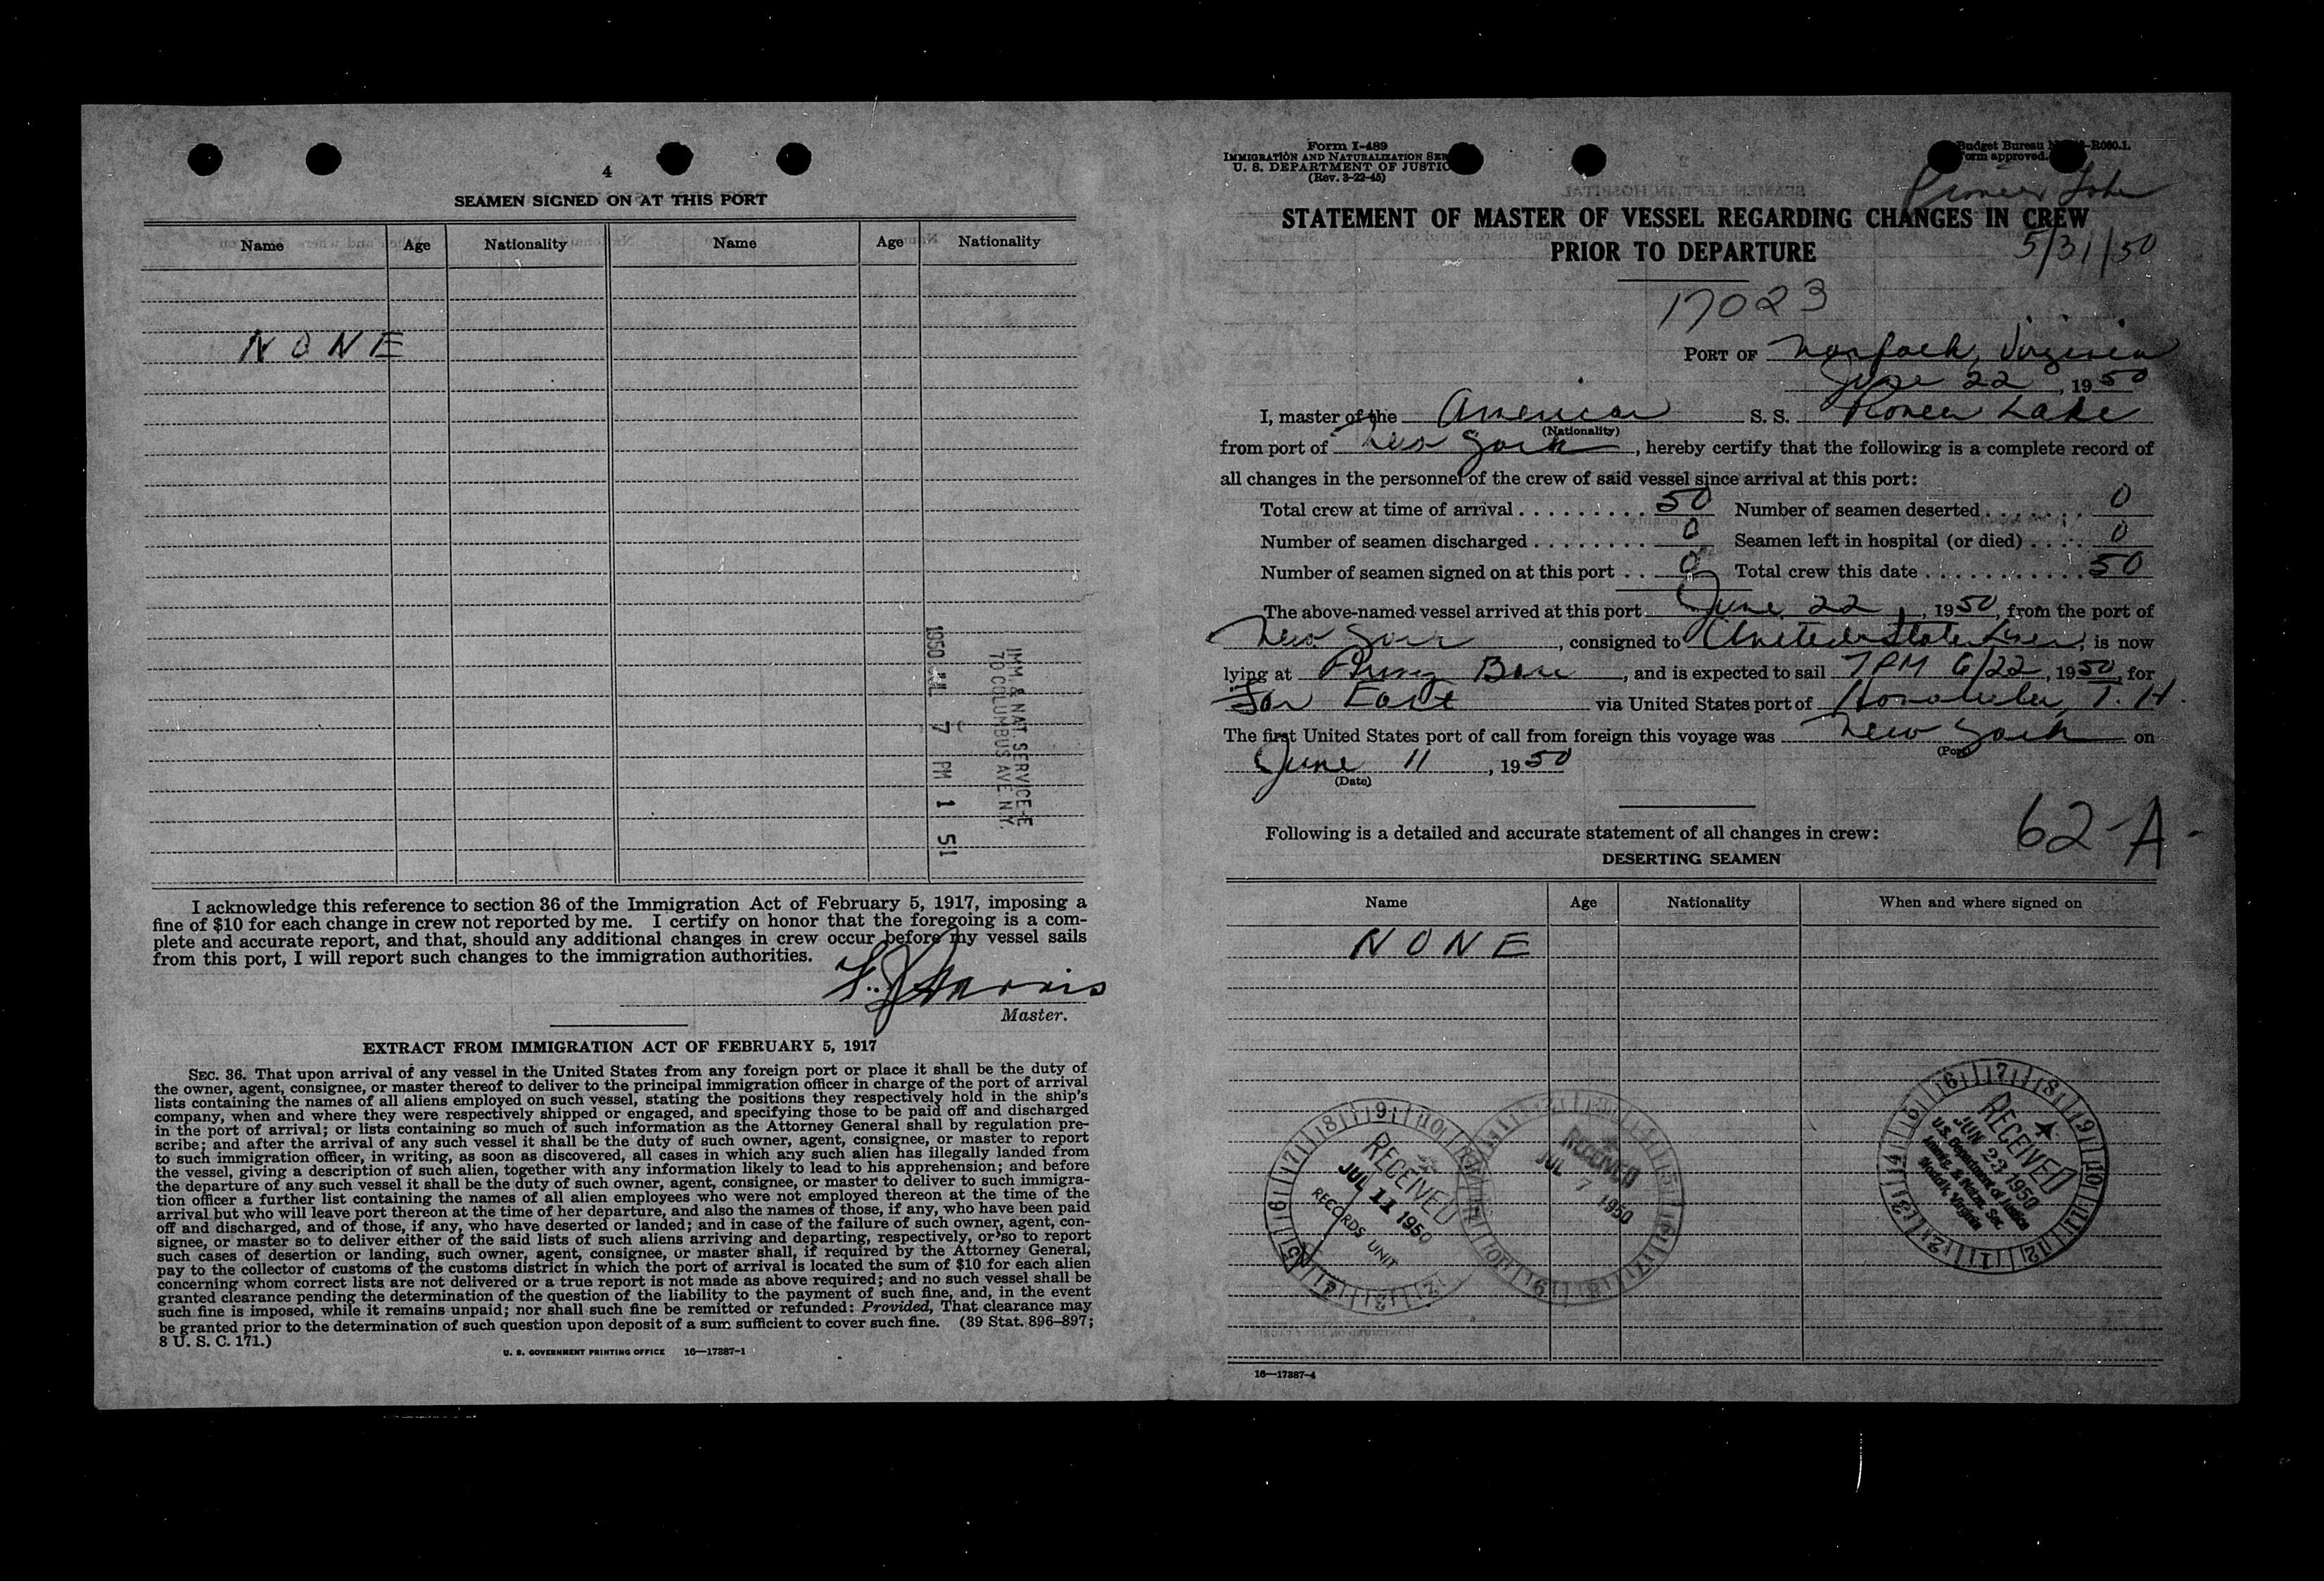 4
SEAMEN SIGNED ON AT THIS PORT
Name Age Nationality Name Age Nationality
NONE
IMM. & NAT. SERVICE-E
70 COLUMBUS AVE N.Y.
1950 JUL 7 PM 1 51
I acknowledge this reference to section 36 of the Immigration Act of February 5, 1917, imposing a
fine of $10 for each change in crew not reported by me. I certify on honor that the foregoing is a com-
plete and accurate report, and that, should any additional changes in crew occur before my vessel sails
from this port, I will report such changes to the immigration authorities.
Master.
EXTRACT FROM IMMIGRATION ACT OF FEBRUARY 5, 1917
SEC. 36. That upon arrival of any vessel in the United States from any foreign port or place it shall be the duty of
the owner, agent, consignee, or master thereof to deliver to the principal immigration officer in charge of the port of arrival
lists containing the names of all aliens employed on such vessel, stating the positions they respectively hold in the ship's
company, when and where they were respectively shipped or engaged, and specifying those to be paid off and discharged
in the port of arrival; or lists containing so much of such information as the Attorney General shall by regulation pre-
scribe; and after the arrival of any such vessel it shall be the duty of such owner, agent, consignee, or master to report
to such immigration officer, in writing, as soon as discovered, all cases in which any such alien has illegally landed from
the vessel, giving a description of such alien, together with any information likely to lead to his apprehension; and before
the departure of any such vessel it shall be the duty of such owner, agent, consignee, or master to deliver to such immigra-
tion officer a further list containing the names of all alien employees who were not employed thereon at the time of the
arrival but who will leave port thereon at the time of her departure, and also the names of those, if any, who have been paid
off and discharged, and of those, if any, who have deserted or landed; and in case of the failure of such owner, agent, con-
signee, or master so to deliver either of the said lists of such aliens arriving and departing, respectively, or so to report
such cases of desertion or landing, such owner, agent, consignee, or master shall, if required by the Attorney General,
pay to the collector of customs of the customs district in which the port of arrival is located the sum of $10 for each alien
concerning whom correct lists are not delivered or a true report is not made as above required; and no such vessel shall be
granted clearance pending the determination of the question of the liability to the payment of such fine, and, in the event
such fine is imposed, while it remains unpaid; nor shall such fine be remitted or refunded: Provided, That clearance may
be granted prior to the determination of such question upon deposit of a sum sufficient to cover such fine. (39 Stat. 896–897;
8 U. S. C. 171.)
U. S. GOVERNMENT PRINTING OFFICE 16—17387-1
Form I-489
IMMIGRATION AND NATURALIZATION SER
U. S. DEPARTMENT OF JUSTIC
(Rev. 3-22-45)
Budget Bureau -R060.1.
Form approved.
Pioneer Lake
STATEMENT OF MASTER OF VESSEL REGARDING CHANGES IN CREW
PRIOR TO DEPARTURE
5/31/50
17023
PORT OF Norfolk, Virginia
June 22, 1950
I, master of the American S. S. Pioneer Lake
(Nationality)
from port of New York, hereby certify that the following is a complete record of
all changes in the personnel of the crew of said vessel since arrival at this port:
Total crew at time of arrival 50 Number of seamen deserted 0
Number of seamen discharged 0 Seamen left in hospital (or died) 0
Number of seamen signed on at this port 0 Total crew this date 50
The above-named vessel arrived at this port June 22, 1950, from the port of
New York, consigned to United States Lines, is now
lying at Army Base, and is expected to sail 7 PM 6/22, 1950, for
Far East via United States port of Honolulu, T. H.
The first United States port of call from foreign this voyage was New York on
(Port)
June 11, 1950
(Date)
62-A-
Following is a detailed and accurate statement of all changes in crew:
DESERTING SEAMEN
Name Age Nationality When and where signed on
NONE
RECEIVED
JUL 11 1950
RECORDS UNIT
RECEIVED
JUL 7 1950
RECEIVED
JUN 23 1950
U.S. Department of Justice
Immig. & Natzn. Ser.
Norfolk, Virginia
16—17387-4